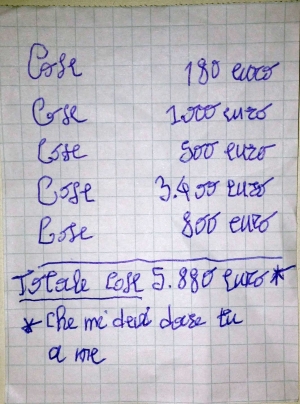 Cose 180 euro
Cose 1.000 euro
Cose 500 euro
Cose 3.400 euro
Cose 800 euro
Totale cose 5.880 euro *
* che mi devi dare tu
a me